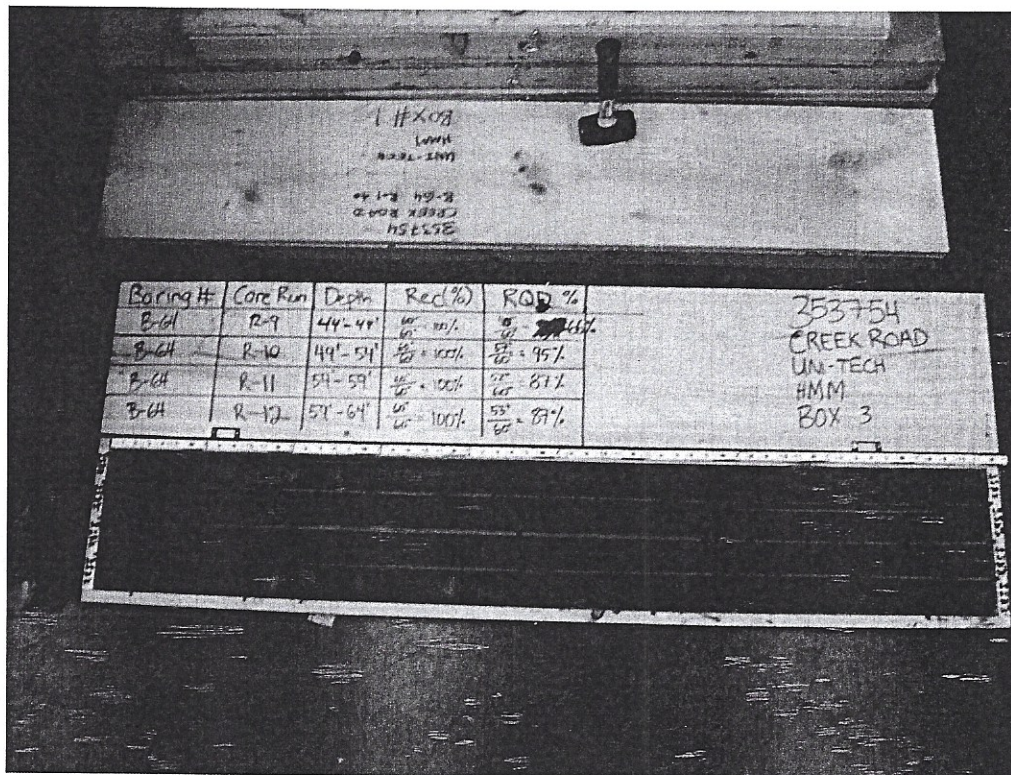 BOX # 1
HMM
UNI-TECH
B-64 R-1 to
CREEK ROAD
353754
Boring # Core Run Depth Rec(%) RQD %
B-64 R-9 100%
B-64 R-10 49'-54' = 100% = 95%
B-64 R-11 54'-59' = 100% = 87%
B-64 R-12 59'-64' = 100% 53'/60' = 87%
353754
CREEK ROAD
UNI-TECH
HMM
BOX 3